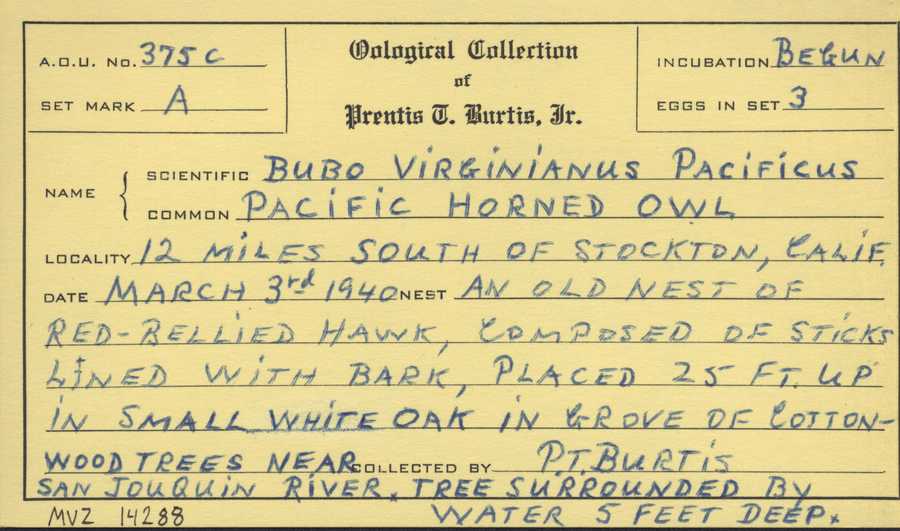 A.O.U. No. 375c
SET MARK A
Oological Collection
of
Prentis T. Burtis, Jr.
INCUBATION BEGUN
EGGS IN SET 3
NAME
SCIENTIFIC BUBO VIRGINIANUS PACIFICUS
COMMON PACIFIC HORNED OWL
LOCALITY 12 MILES SOUTH OF STOCKTON, CALIF.
DATE MARCH 3rd 1940 NEST AN OLD NEST OF
RED-BELLIED HAWK, COMPOSED OF STICKS
LINED WITH BARK, PLACED 25 FT. UP
IN SMALL WHITE OAK IN GROVE OF COTTON-
WOOD TREES NEAR COLLECTED BY P.T. BURTIS
SAN JOUQUIN RIVER. TREE SURROUNDED BY
WATER 5 FEET DEEP.
MVZ 14288